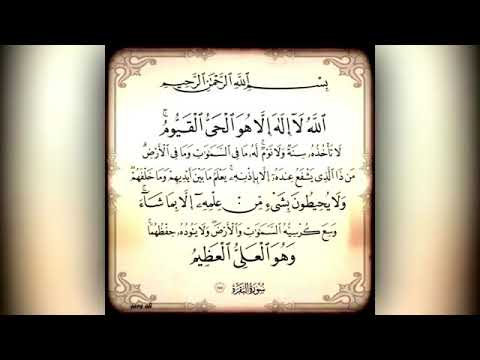 بِسْمِ اللَّهِ الرَّحْمَٰنِ الرَّحِيمِ
اللَّهُ لَآ إِلَٰهَ إِلَّا هُوَ الْحَىُّ الْقَيُّومُ ۚ
لَا تَأْخُذُهُۥ سِنَةٌ وَلَا نَوْمٌ ۚ لَّهُۥ مَا فِى السَّمَٰوَٰتِ وَمَا فِى الْأَرْضِ ۗ
مَن ذَا الَّذِى يَشْفَعُ عِندَهُۥٓ إِلَّا بِإِذْنِهِۦ ۚ يَعْلَمُ مَا بَيْنَ أَيْدِيهِمْ وَمَا خَلْفَهُمْ ۖ
وَلَا يُحِيطُونَ بِشَىْءٍ مِّنْ : عِلْمِهِۦٓ إِلَّا بِمَا شَآءَ ۚ
وَسِعَ كُرْسِيُّهُ السَّمَٰوَٰتِ وَالْأَرْضَ ۖ وَلَا يَـُٔودُهُۥ حِفْظُهُمَا ۚ
وَهُوَ الْعَلِىُّ الْعَظِيمُ
سُورَةُ الْبَقَرَةِ